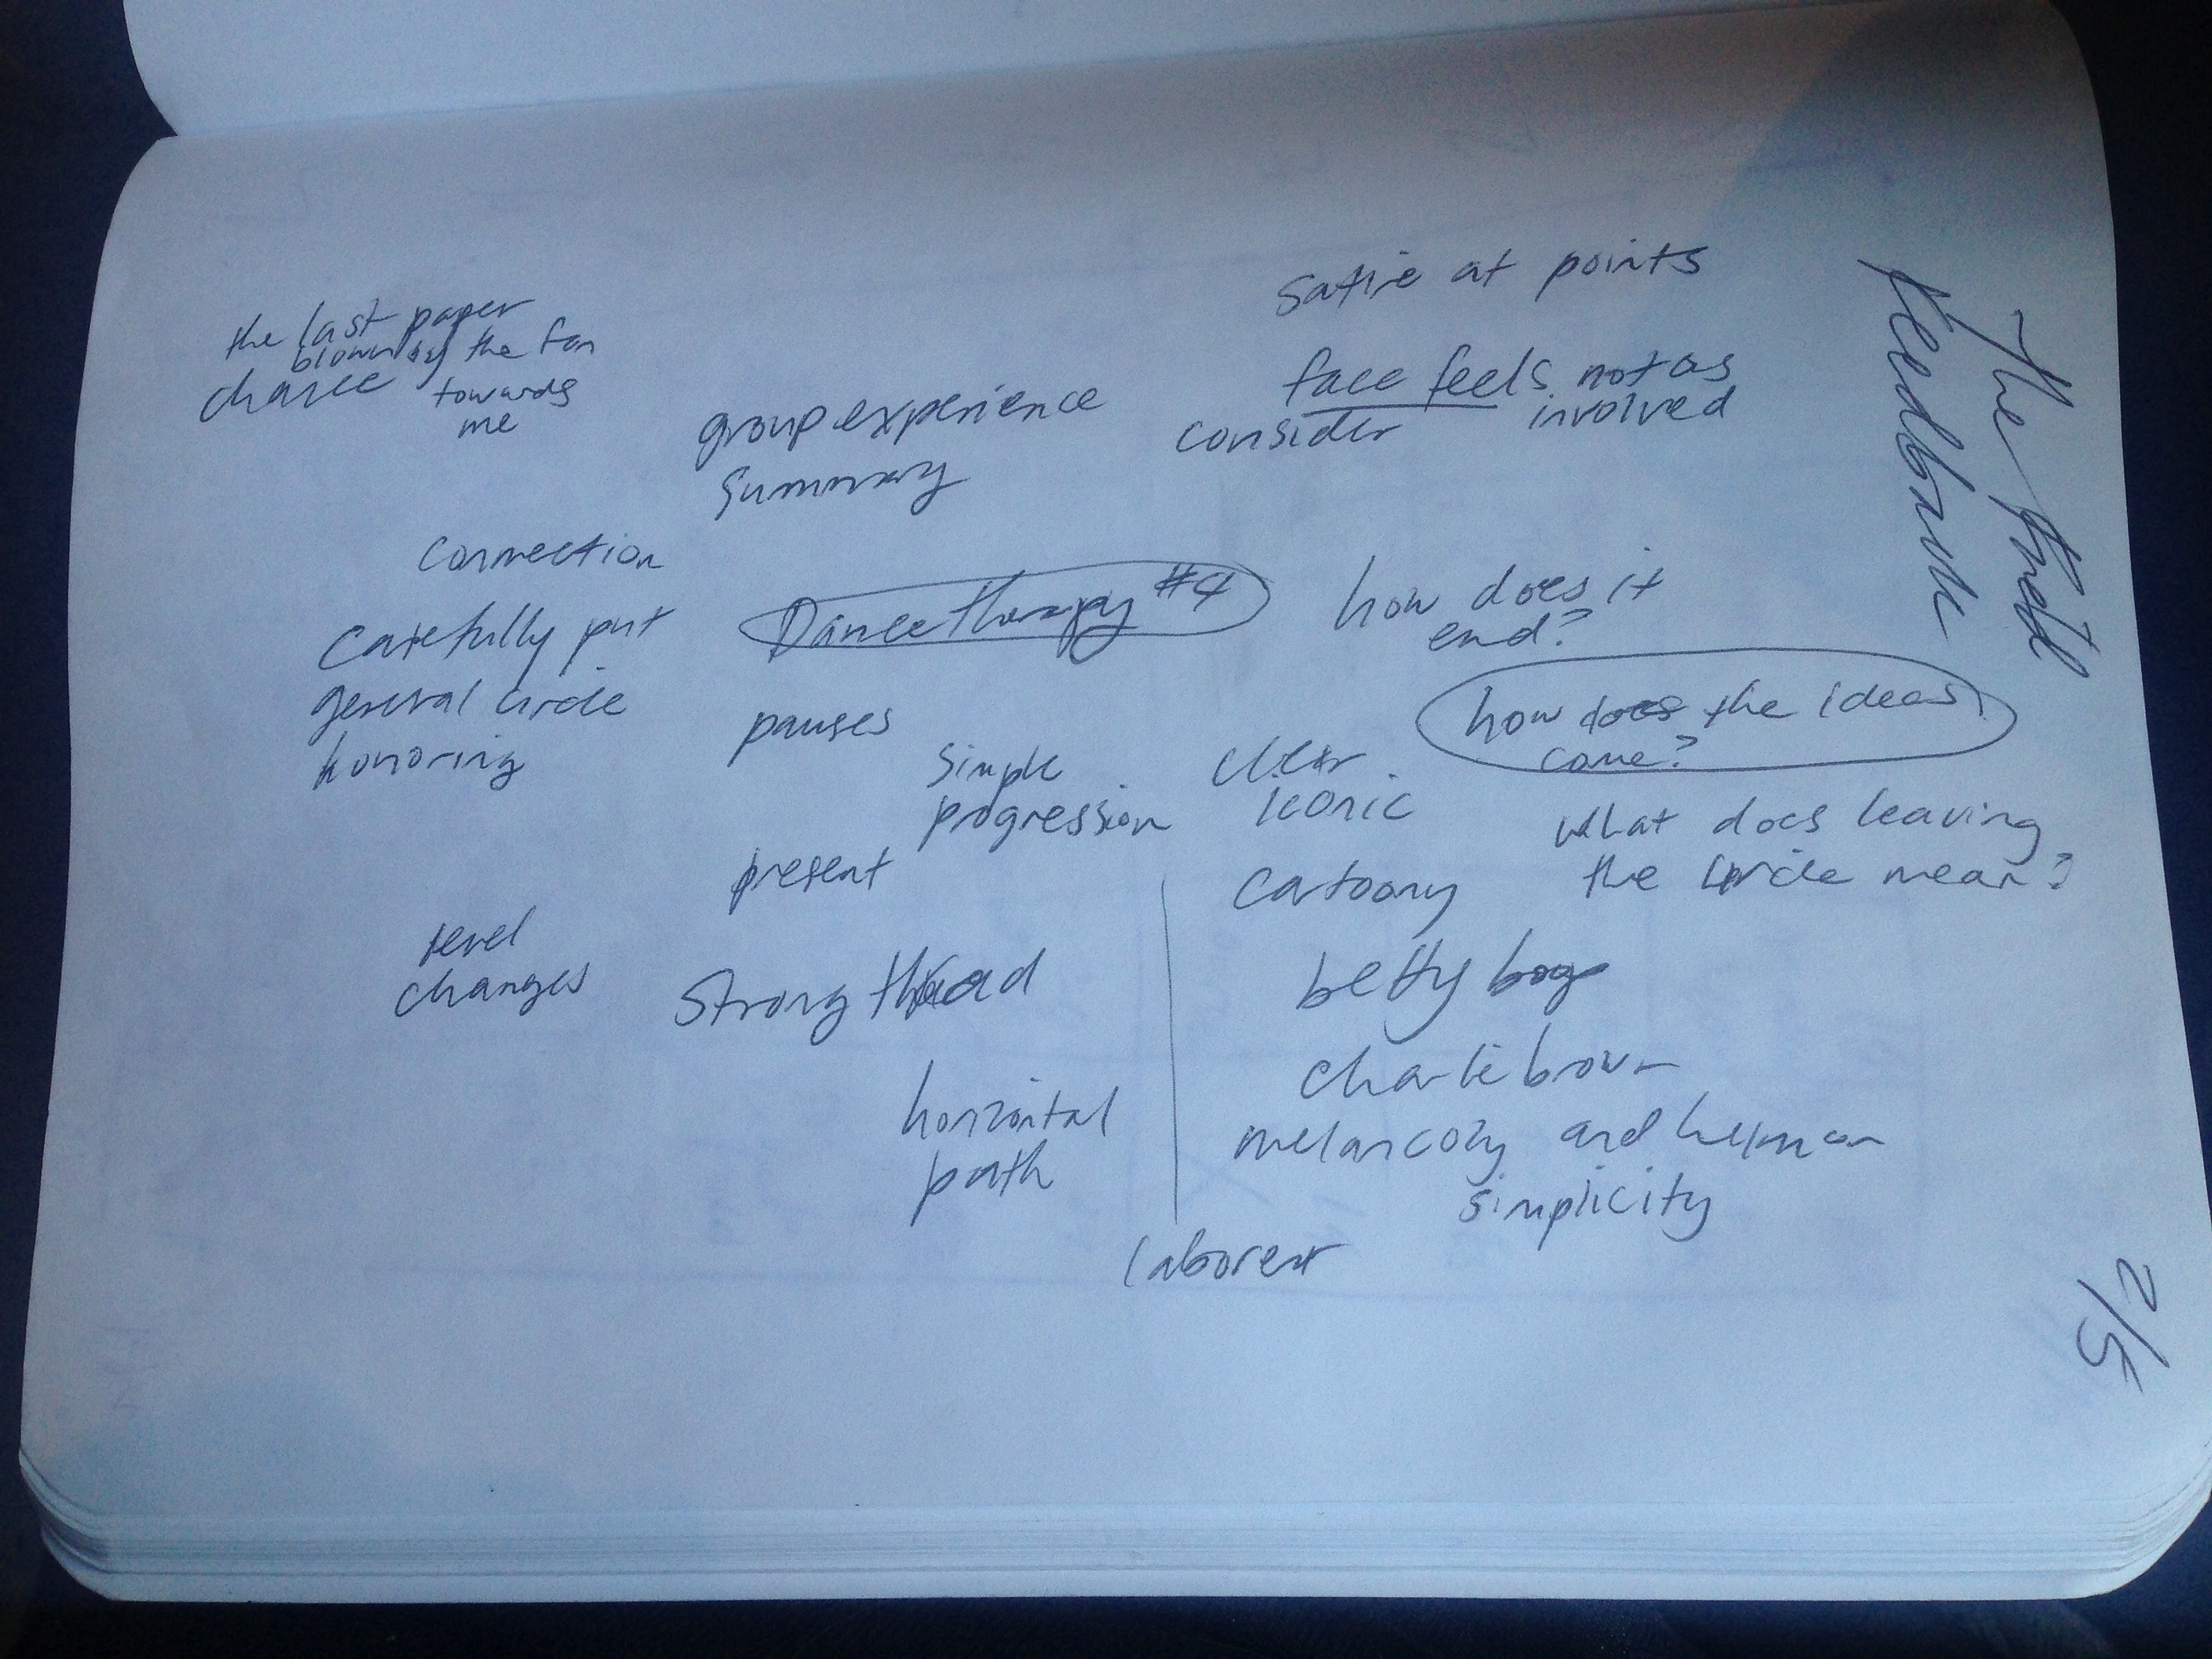 satire at points
the last paper
blown by the fan
chance
towards
me
face feels not as
involved
consider
group experience
summary
connection
Dance therapy #4
how does it
end?
carefully put
general circle
honoring
pauses
how does the ideas
come?
simple
progression
clear
iconic
what does leaving
the circle mean?
present
cartoony
level
changes
strong thread
betty boop
charlie brown
horizontal
path
melancoly and human
simplicity
The
feedback
2/5